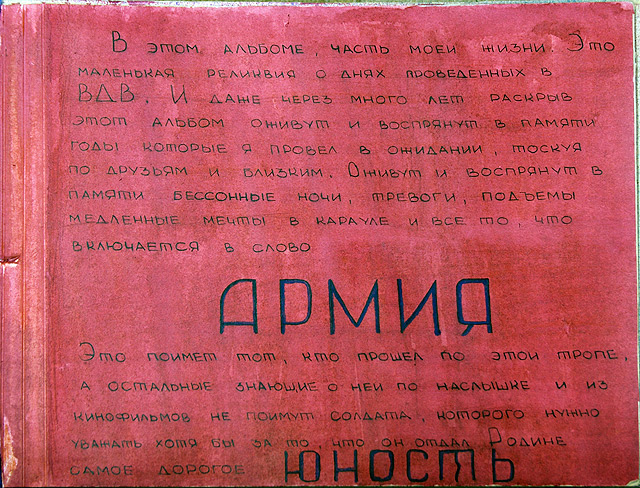 В этом альбоме, часть моей жизни. Это
маленькая реликвия о днях проведенных в
ВДВ. И даже через много лет раскрыв
этот альбом оживут и воспрянут в памяти
годы которые я провел в ожидании, тоскуя
по друзьям и близким. Оживут и воспрянут в
памяти бессонные ночи, тревоги, подъемы
медленные мечты в карауле и все то, что
включается в слово
АРМИЯ
Это поимет тот, кто прошел по этой тропе,
а остальные знающие о ней по наслышке и из
кинофильмов не поимут солдата, которого нужно
уважать хотя бы за то, что он отдал Родине
самое дорогое ЮНОСТЬ